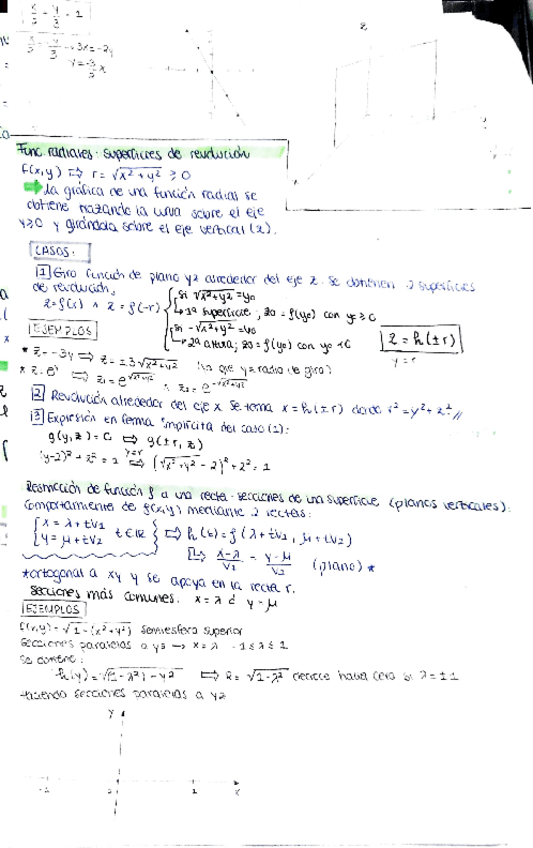 x/2 - y/3 = 1
→ 3x = -2y
y = -3/2 x
z
Func. radiales - superficies de revolución
f(x,y) ⇒ r = √x²+y² ≥ 0
➡ La gráfica de una función radial se
obtiene trazando la curva sobre el eje
y≥0 y girándola sobre el eje vertical (z).
CASOS:
1 Giro función de plano yz alrededor del eje z. Se obtienen 2 superficies
de revolución.
z = f(r) ∧ z = f(-r)
si √x²+y² = y₀
↳ 1ª superficie; z₀ = f(y₀) con y₀ ≥ 0
si -√x²+y² = y₀
↳ 2ª ; z₀ = f(y₀) con y₀ < 0
z = h(±r)
y = r
EJEMPLOS
* z = -3y ⇒ z = ±3√x²+y² (ya que y = radio de giro)
* z = eʸ ⇒ z₁ = e^√x²+y² ∧ z₂ = e^-√x²+y²
2 Revolución alrededor del eje x se toma x = h(±r) donde r² = y²+z² //
3 Expresión en forma implícita del caso (1):
g(y,z) = 0 ⇔ g(±r, z)
(y-2)² + z² = 1 ⇔ (√x²+y² - 2)² + z² = 1
Restricción de función f a una recta - secciones de una superficie (planos verticales):
Comportamiento de f(x,y) mediante 2 rectas:
{x = λ + tv₁
y = μ + tv₂ t∈ℝ} ⇒ h(t) = f(λ + tv₁, μ + tv₂)
↳ x-λ/v₁ = y-μ/v₂ (plano) *
*ortogonal a xy y se apoya en la recta r.
Secciones más comunes: x = λ ó y = μ
EJEMPLOS
f(x,y) = √1-(x²+y²) semiesfera superior
Secciones paralelas a yz → x = λ -1 ≤ λ ≤ 1
Se obtiene:
h(y) = √(1-λ²) - y² ⇒ R = √1-λ² decrece hasta cero si λ = ±1
Haciendo secciones paralelas a yz
y
-1 0 1 x